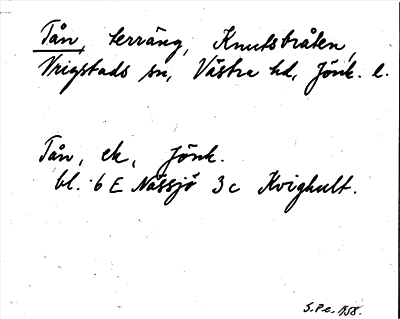 Tån, terräng, Knutsbråten,
Vrigstads sn, Västra hd, Jönk. l.
Tån, ek, Jönk.
bl. 6 E Nässjö 3 c Kvighult.
S.P.c. 1958.